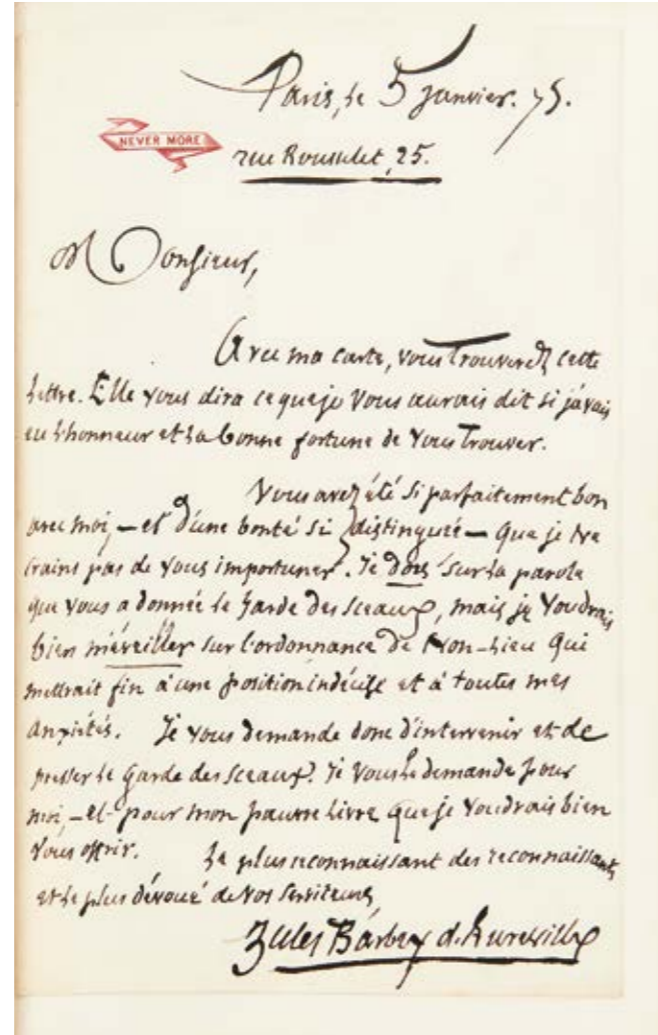 Paris, le 5 janvier. 75.
NEVER MORE
rue Rousselet, 25.
Monsieur,
Avec ma carte, vous trouverez cette
lettre. Elle vous dira ce que je vous aurais dit si j'avais
eu l'honneur et la bonne fortune de vous trouver.
Vous avez été si parfaitement bon
avec moi, — et d'une bonté si distinguée — que je ne
crains pas de vous importuner. Je dors sur la parole
que vous a donnée le Garde des Sceaux, mais je voudrais
bien m'éveiller sur l'ordonnance de Non-lieu qui
mettrait fin à une position indécise et à toutes mes
anxiétés. Je vous demande donc d'intervenir et de
presser le Garde des Sceaux. Je vous le demande pour
moi, — et pour mon pauvre livre que je voudrais bien
vous offrir. Le plus reconnaissant des reconnaissants
et le plus dévoué de vos serviteurs
Jules Barbey d'Aurevilly